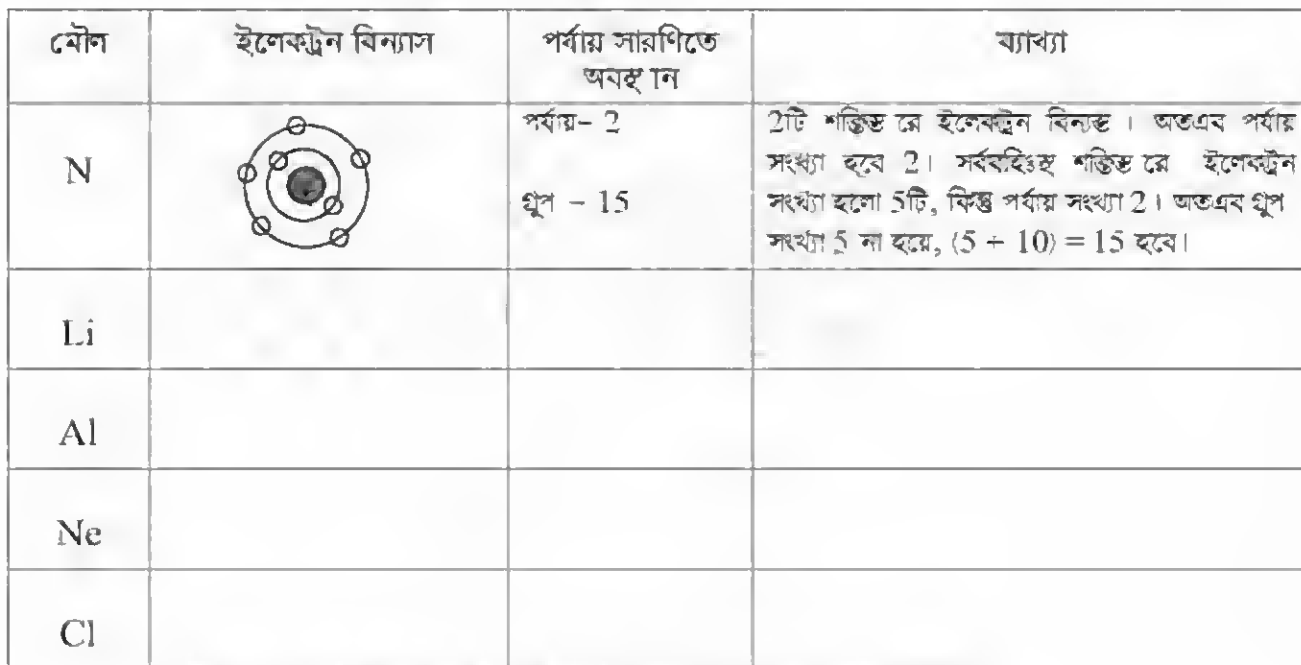 মৌল ইলেকট্রন বিন্যাস পর্যায় সারণিতে অবস্থান ব্যাখ্যা
N
পর্যায়– 2
গ্রুপ – 15
2টি শক্তিস্তরে ইলেকট্রন বিন্যস্ত । অতএব পর্যায়
সংখ্যা হবে 2। সর্ববহিঃস্থ শক্তিস্তরে ইলেকট্রন
সংখ্যা হলো 5টি, কিন্তু পর্যায় সংখ্যা 2। অতএব গ্রুপ
সংখ্যা 5 না হয়ে, (5 + 10) = 15 হবে।
Li
Al
Ne
Cl